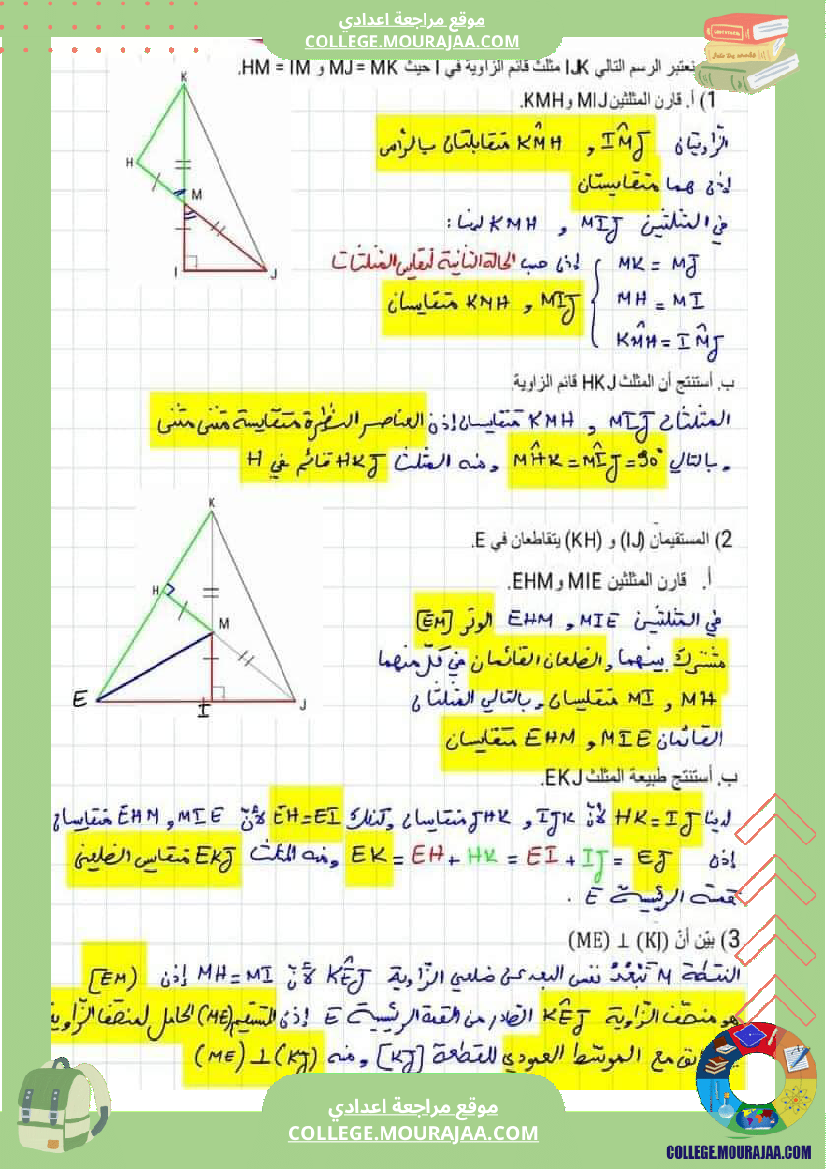 موقع مراجعة اعدادي
COLLEGE.MOURAJAA.COM
نعتبر الرسم التالي IJK مثلث قائم الزاوية في I حيث MJ = MK و HM = IM.
1) أ. قارن المثلثين MIJ و KMH.
K
H
M
I
J
الزاويتان IM̂J و KM̂H متقابلتان بالرأس
إذن هما متقايستان
في المثلثين MIJ و KMH لدينا:
MK = MJ
MH = MI
KM̂H = IM̂J
إذن حسب الحالة الثانية لتقايس المثلثات
MIJ و KMH متقايسان
ب. أستنتج أن المثلث HKJ قائم الزاوية
المثلثان MIJ و KMH متقايسان إذن العناصر النظيرة متقايسة مثنى مثنى
وبالتالي MĤK = MÎJ = 90° ومنه المثلث HKJ قائم في H
K
H
M
E
I
J
2) المستقيمان (IJ) و (KH) يتقاطعان في E.
أ. قارن المثلثين MIE و EHM.
في المثلثين MIE و EHM الوتر [EM]
مشترك بينهما والضلعان القائمان في كل منهما
MH و MI متقايسان وبالتالي المثلثان
القائمان MIE و EHM متقايسان
ب. أستنتج طبيعة المثلث EKJ.
لدينا HK = IJ لأن IJK و JHK متقايسان وكذلك EH = EI لأن MIE و EHM متقايسان
إذن EK = EH + HK = EI + IJ = EJ ومنه المثلث EKJ متقايس الضلعين
قمته الرئيسية E.
3) بيّن أنّ (KJ) ⊥ (ME)
النقطة M تبعد نفس البعد عن ضلعي الزاوية KÊJ لأن MH = MI إذن [EM)
هو منصف الزاوية KÊJ الصادر من القمة الرئيسية E إذن المستقيم (ME) الحامل لمنصف الزاوية
مع الموسط العمودي للقطعة [KJ] ومنه (ME) ⊥ (KJ)
موقع مراجعة اعدادي
COLLEGE.MOURAJAA.COM
COLLEGE.MOURAJAA.COM